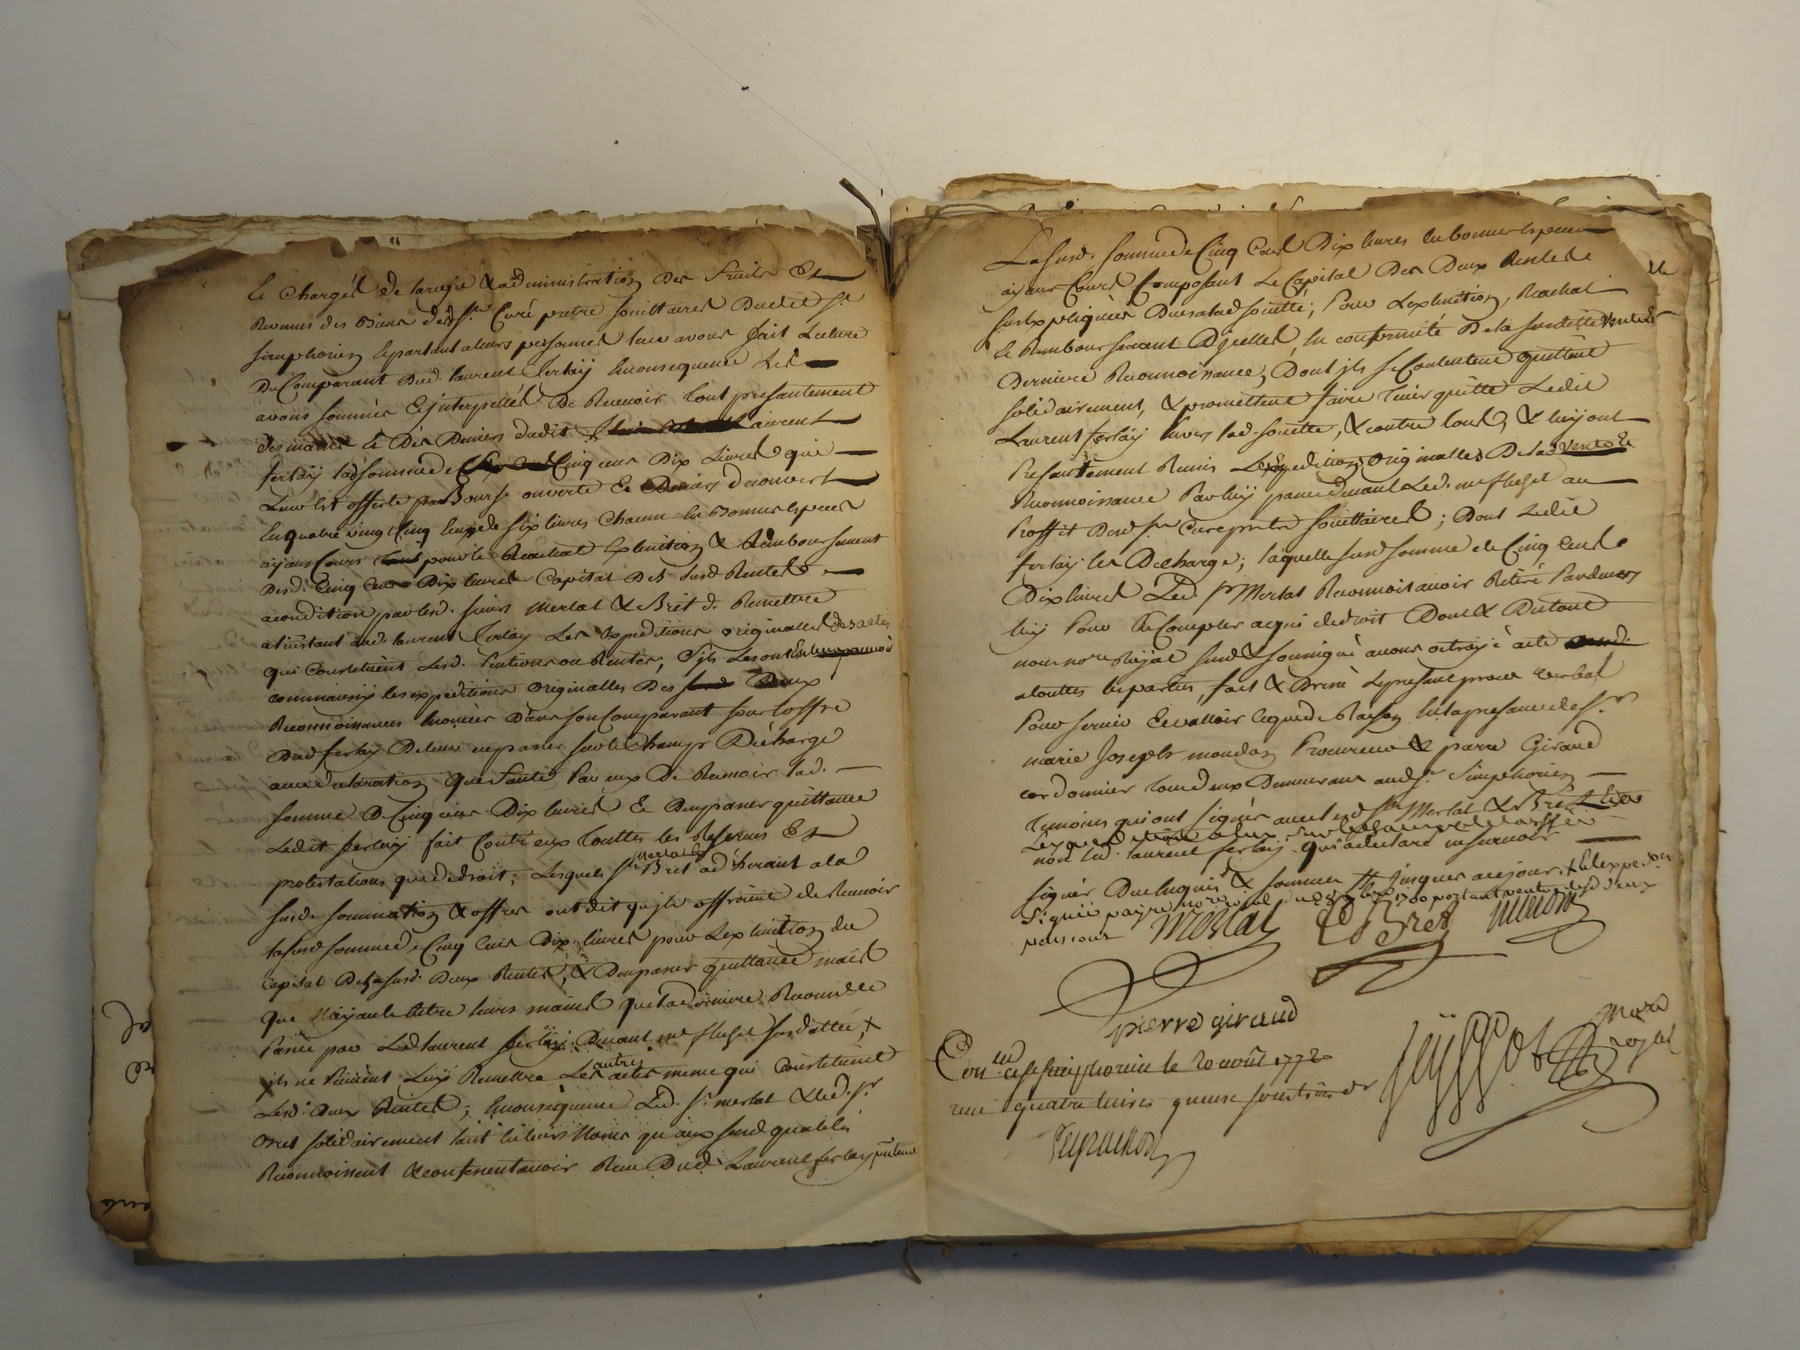 Et Chargés de la regie & administration Des fruits Et
Revenus des Biens desd. Srs. Curé pretre societtaires Dudit St.
simphorien Et parlant a leurs personnes leur avons fait Lecture
Du Comparant Dud. laurent ferlay En consequence Les
avons sommés & interpellés De Recevoir tout presantement
Des mains Et Des Deniers dudit Laurent
ferlay lad. somme de Cinq cens Dix Livres qui
Leur Est offerte a Bourse ouverte Et Deniers decouvert
En quatre vingt Cinq Ecus de six livres Chacun En Bonnes Especes
ayant Cours pour le Rachat Extinction & Remboursement
Desd. Cinq Cens Dix livres Capital Des susd. Rentes
a condition par lesd. sieurs merlat & Bret de Remettre
a l'instant aud. laurent ferlay Les Expeditions originalles des actes
qui Constituent lesd. Pentions ou Rentes, s'ils Les ont
comme aussy les expeditions originalles Des Deux
Reconnoissances Enoncées Dans son Comparant sous l'offre
Dud. ferlay De leur en passer sur le Champ Decharge
avec declaration que faute Par eux De Recevoir lad.
somme De Cinq cens Dix livres Et D'en passer quittance
Ledit ferlay fait Contre eux Touttes les Reserves Et
protestations que de droit; Lesquels Srs. Merlat & Bret adherant a la
susd. sommation & offres ont dit qu'ils offroient de Recevoir
la susd. somme de Cinq Cens Dix livres pour L'extinction du
capital Des susd. Deux Rentes, & D'en passer quittance mais
que N'ayant Entre leurs mains que la derniere Reconnce
Passée par Led. laurent ferlay Devant me flezet susd. dattée, +
ils ne Peuvent Luy Remettre Les autres actes meme qui Constituent
Lesd. Deux Rentes; En consequence Led. Sr. merlat & Led. Sr.
Bret solidairement tant En leurs Noms qu'aux susd. qualités
Reconnoissent & confessent avoir Reçu Dud. Laurent ferlay
La susd. somme de Cinq Cens Dix livres En bonnes Especes
ayant Cours Composant Le Capital Des Deux Rentes
sus Expliquées Dues a lad. societté; Pour L'extinction, Rachat
Et Remboursement D'icelles En conformité De la susditte
Derniere Reconnoissance, Dont ils se Contentent quittent
solidairement, & promettent faire Tenir quitte Ledit
Laurent ferlay Envers lad. societte, & contre tous, & luy ont
Presantement Remis L'expedition originalles De la
Reconnoissance Par luy passée Devant Led. me flezet au
Proffit Desd. Srs. Curé pretre societtaires; Dont Ledit
ferlay les Decharge; laquelle susd. somme de Cinq Cens
Dix livres Led. Sr Merlat Reconnoit avoir Retiré Pardevers
luy Pour En Compter a qui de droit Dont & Du tout
nous nore Royal susd. & soussigné avons octroyé acte
a touttes les parties, fait & Dressé Le presant proces verbal
Pour servir Et valloir Ce que de Raison En la presance de Sr.
marie Joseph mondon Procureur & pierre Giraud
cordonnier tous deux Demeurans aud. St. Simphorien
Temoins qui ont signés avec lesd. Srs Merlat & Bret
non led. laurent ferlay qui a declaré ne scavoir
signer De ce Enquis & sommé jusques a ce jour
signée payre nore portant vente desd. deux
pensions Merlat Bret mondon
pierre giraud
Con.lé a St simphorien le 20 août 1772
reçu quatre livres quinze sous
nore
royal